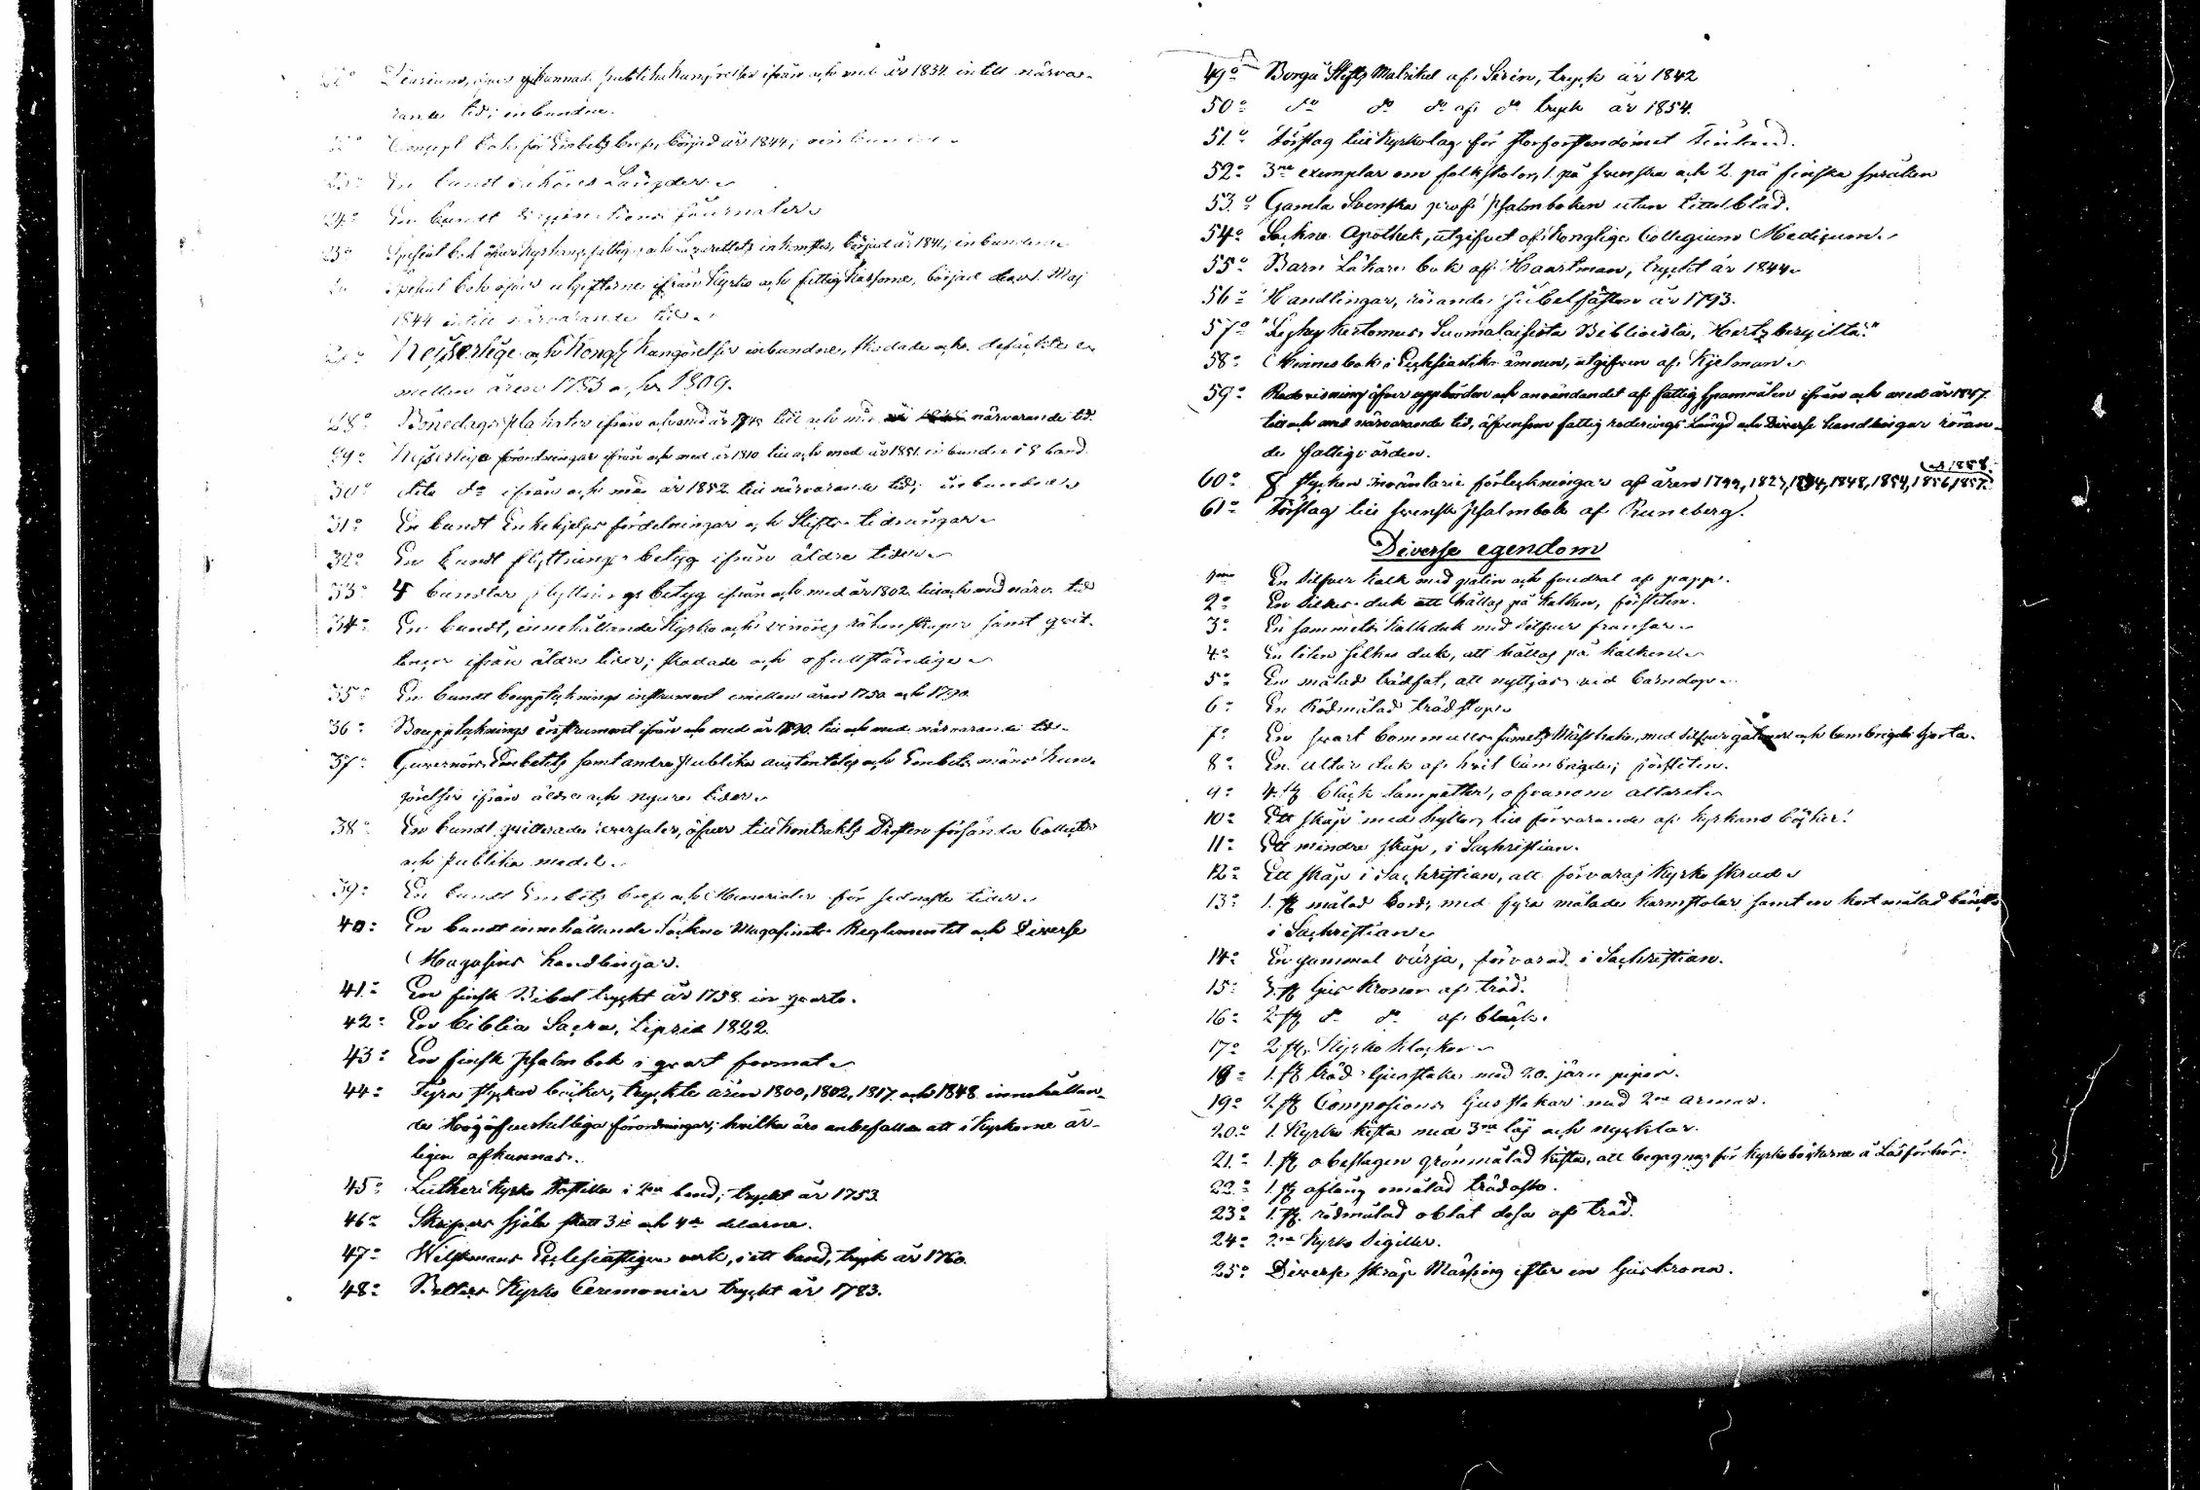 21:o Diarium, öfver afkunnade publika kungörelser ifrån och med år 1834 intill närva-
rande tid; inbundne.
22:o Concept bok för Embets bref, börjad år 1844; oinbunden
23:o En bundt Inköns Längder
24:o En bundt Journaler
25:o Speciel bok öfver Kyrkans, fattig och Lazarettets inkomster, börjad år 1841; inbunden
26:o Speciel bok öfver utgifterne ifrån Kyrko och fattig Kassorne, börjad den 1. Maj
1844 intill närvarande tid.
27:o Kejserlige och Kongl. Kungörelser inbundne, skadade och defeckte
mellan åren 1783 och 1809.
28:o Bönedagsplakater ifrån och med år till och med närvarande tid.
29:o Kejserliga förordningar ifrån och med år 1810 till och med år 1851. inbundne i 9 band.
30:o dito d:o ifrån och med år 1852 till närvarande tid; inbundne
31:o En bundt Enkehjelps fördelningar och Stifts tidningar
32:o En bundt flyttnings betyg ifrån äldre tider
33:o 4 bundtar flyttnings betyg ifrån och med år 1802 till och med närv. tid
34:o En bundt, innehållande Kyrko och räkenskaper samt qvit-
tencer ifrån äldre tider; skadade och ofullständige
35:o En bundt bouppteknings instrument emellan åren 1750 och 1790.
36:o Bouppteknings instrument ifrån och med år 1790 till och med närvarande tid.
37:o Guvernörs Embetets samt andra publika auctoritets och Embets mäns kun-
görelser ifrån äldre och nyare tider
38:o En bundt qvitterade reversaler, öfver till Kontrakts Prosten försända Collecter
och publika medel.
39:o En bundt Embets bref och Memorialer för sednaste tider
40:o En bundt innehållande Sockne Magasinets Reglementet och Diverse
Magasins handlingar.
41:o En finsk Bibel tryckt år 1758 in quarto.
42:o En biblia Sacra, Lipsia 1822.
43:o En finsk psalmbok i qvart format
44:o Fyra stycken böcker, tryckte åren 1800, 1802, 1817 och 1848 innehållan-
de Högöfverhetliga förordningar; hvilka äro anbefallda att i Kyrkorne år-
ligen afkunnas.
45:o Lutheri Kyrko Postilla i 2ne band; tryckt år 1753.
46:o Skrifvers själa skatt 3:je och 4:de delarne.
47:o Wilskmans Ecclesiastique verk, i ett band, tryck år 1760.
48:o Bellters Kyrko Ceremonier tryckt år 1783.
49:o Borgå Stifts Matrikel af Sirén, tryck år 1842
50:o d:o d:o d:o af d:o tryck år 1854.
51:o Förslag till Kyrkolag för Storfurstendömet Finland.
52:o 3ne exemplar om folkskolor, 1. på svenska och 2. på finska språken
53:o Gamla Svenska prof psalmboken utan tittelblad.
54:o Sockne Apothek, utgifvet af Konglige Collegium Medicum.
55:o Barn Läkare bok af Haartman, tryckt år 1844
56:o Handlingar, rörande Jubelfästen år 1793.
57:o "Lyhy kertomus Suomalaisista Biblioista, Hertzbergiltä."
58:o Minnesbok i Ecclesiastika ämnen, utgifven af Kjelman
59:o Redovisning öfver uppbörden och användandet af fattig spannmålen ifrån och med år 1847.
till och med närvarande tid, äfvensom fattig roderings Längd och Diverse handlingar röran-
de fattigvården.
och 1858.
60:o 8 stycken inventarie förteckningar af åren 1799, 1827, 1834, 1848, 1854, 1856, 1857.
61:o Förslag till svensk psalmbok af Runeberg.
Diverse egendom
1:mo En silfver kalk med patin och foudral af papp.
2:o En silkes duk att hållas på kalken, försliten.
3:o En sammets kalkduk med silfver fransar
4:o En liten silkes duk, att hållas på kalken
5:o En målad trädfat, att nyttjas vid barndop.
6:o En Rödmålad trädstop
7:o En svart bommulls sammets Mässhake, med silfver galoner och cambrigds skjorta.
8:o En Altar duk af hvit Cambrigde; försliten.
9:o 4. st. bläck lampetter, ofvanom altaret
10:o Ett skåp med hyllor, till förvarande af Kyrkans böcker.
11:o Ett mindre skåp, i Sachristian.
12:o Ett skåp i Sachristian, att förvaras Kyrko skrud
13:o 1. st. målad bord, med fyra målade karmstolar samt en kort målad bänk
i Sachristian
14:o En gammal värja, förvarad i Sachristian.
15:o 3. st. ljus kronor af träd.
16:o 2. st. d:o d:o af bläck.
17:o 2 st. Kyrko klockor
18:o 1. st. träd ljusstake med 20. järn pipor.
19:o 2. st. Compositions ljusstakar med 2ne armar.
20:o 1. Kyrko kista med 3ne lås och nycklar.
21:o 1. st. obeslagen grönmålad kista, att begagnas för Kyrkoböckerne å Läsförhör.
22:o 1. st. aflång omålad trädask.
23:o 1. st. rödmålad oblat dosa af träd.
24:o 2ne Kyrko Sigiller.
25:o Diverse skräp Mässing efter en ljuskrona.